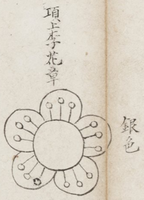 頂上李花章
銀色